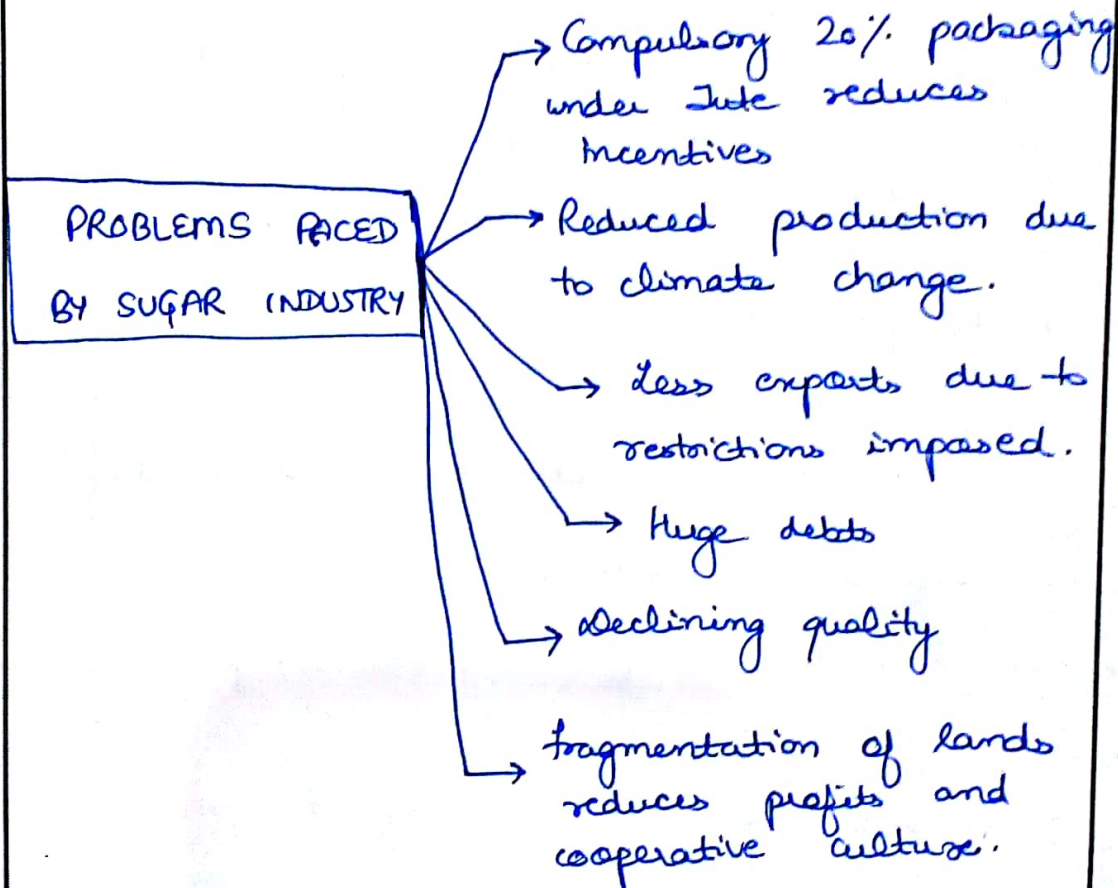 PROBLEMS FACED
BY SUGAR INDUSTRY
Compulsory 20% packaging
under Jute reduces
Incentives
Reduced production due
to climate change.
Less exports due to
restrictions imposed.
Huge debts
Declining quality
fragmentation of lands
reduces profits and
cooperative culture.